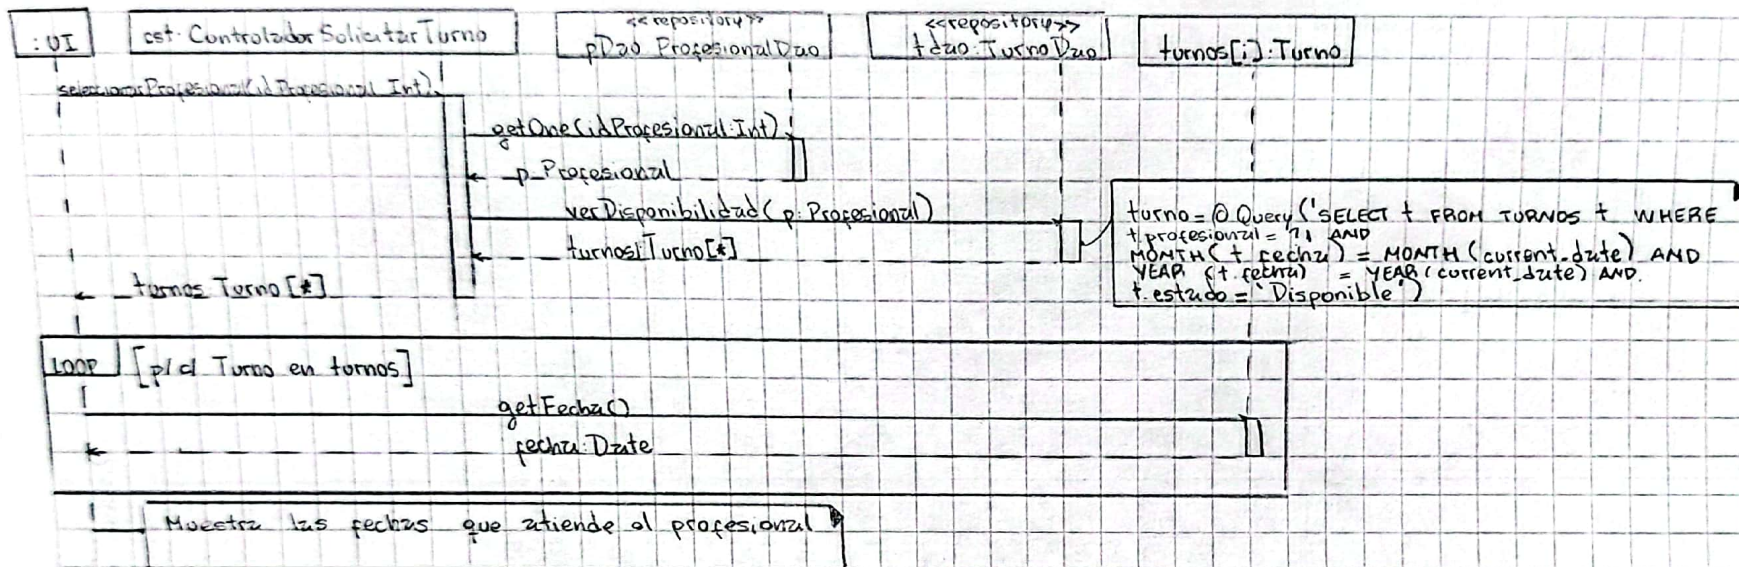 :UI
cst:ControladorSolicitarTurno
<<repository>>
pDao ProfesionalDao
<<repository>>
tdao:TurnoDao
turnos[i]:Turno
seleccionarProfesional(idProfesional Int)
getOne(idProfesional:Int)
p Profesional
verDisponibilidad(p:Profesional)
turnos:Turno[*]
turnos Turno[*]
turno=@Query('SELECT t FROM TURNOS t WHERE
t.profesional = ?1 AND
MONTH(t.fecha) = MONTH(current_date) AND
YEAR (t.fecha) = YEAR(current_date) AND.
t.estado='Disponible')
LOOP [p/c/ Turno en turnos]
getFecha()
fecha:Date
Muestra las fechas que atiende el profesional